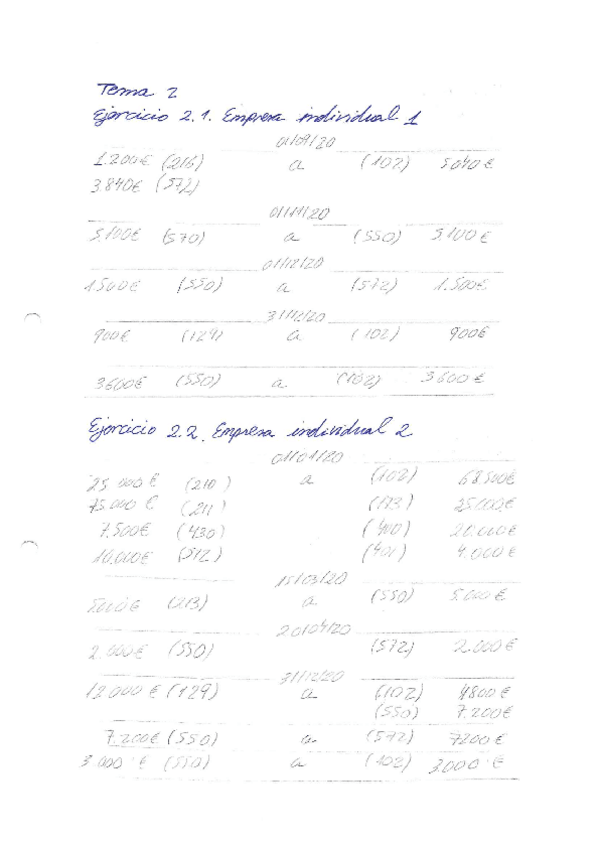 Tema 2
Ejercicio 2.1. Empresa individual 1
01/09/20
1.200€ (216) a (102) 5040€
3.840€ (572)
01/11/20
5.100€ (570) a (550) 5.100€
01/12/20
1.500€ (550) a (572) 1.500€
31/12/20
900€ (129) a (102) 900€
3600€ (550) a (102) 3600€
Ejercicio 2.2. Empresa individual 2
01/01/20
25.000€ (210) a (102) 68500€
75.000€ (211) (173) 25.000€
7.500€ (430) (400) 20.000€
10.000€ (572) (401) 4.000€
15/03/20
5000€ (213) a (550) 5.000€
20/04/20
2.000€ (550) (572) 2.000€
31/12/20
12.000€ (129) a (102) 4800€
(550) 7.200€
7.200€ (550) a (572) 7200€
3.000€ (550) a (102) 3000€